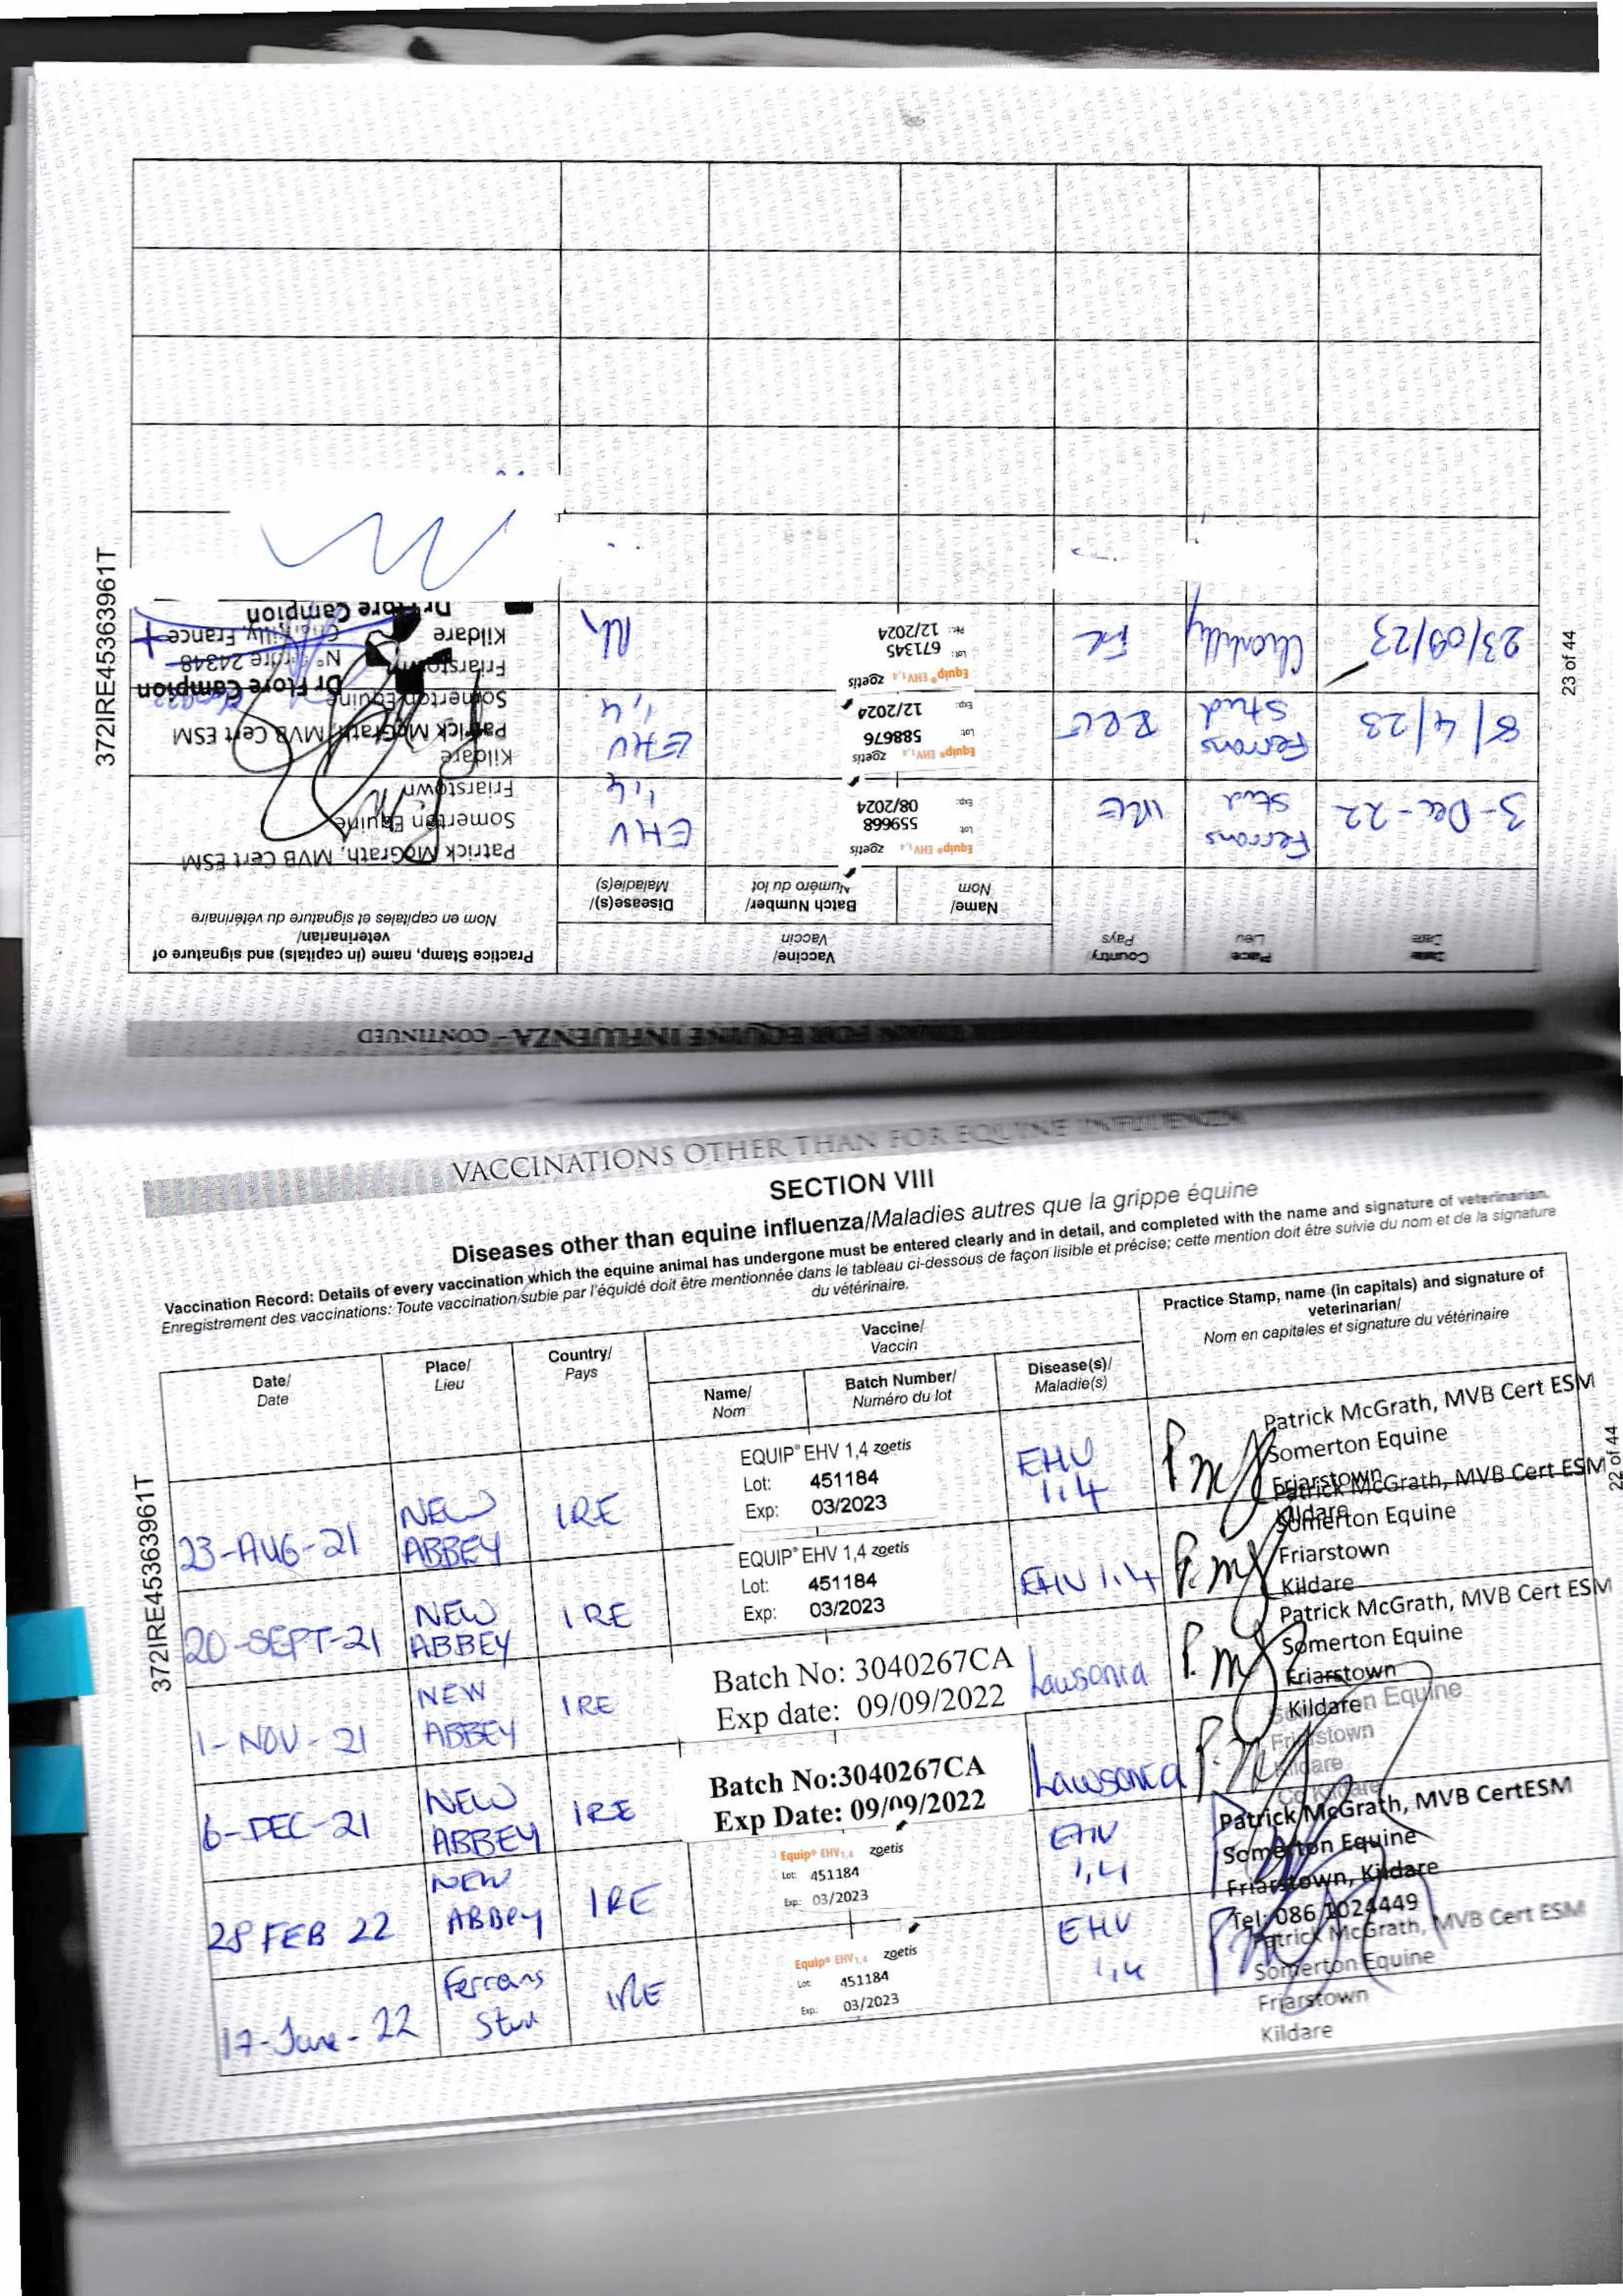 VACCINATIONS OTHER THAN FOR EQUINE INFLUENZA
SECTION VIII
Diseases other than equine influenza/Maladies autres que la grippe équine
Vaccination Record: Details of every vaccination which the equine animal has undergone must be entered clearly and in detail, and completed with the name and signature of veterinarian.
Enregistrement des vaccinations: Toute vaccination subie par l'équidé doit être mentionnée dans le tableau ci-dessous de façon lisible et précise; cette mention doit être suivie du nom et de la signature
du vétérinaire.
Date/
Date
Place/
Lieu
Country/
Pays
Vaccine/
Vaccin
Name/
Nom
Batch Number/
Numéro du lot
Disease(s)/
Maladie(s)
Practice Stamp, name (in capitals) and signature of
veterinarian/
Nom en capitales et signature du vétérinaire
23-AUG-21
NEW
ABBEY
IRE
EQUIP® EHV 1,4 zoetis
Lot: 451184
Exp: 03/2023
EHV
1,4
Patrick McGrath, MVB Cert ESM
Somerton Equine
Friarstown
Kildare
20-SEPT-21
NEW
ABBEY
IRE
EQUIP® EHV 1,4 zoetis
Lot: 451184
Exp: 03/2023
EHV 1,4
Patrick McGrath, MVB Cert ESM
Somerton Equine
Friarstown
Kildare
1-NOV-21
NEW
ABBEY
IRE
Batch No: 3040267CA
Exp date: 09/09/2022
Lawsonia
Patrick McGrath, MVB Cert ESM
Somerton Equine
Friarstown
Kildare
6-DEC-21
NEW
ABBEY
IRE
Batch No:3040267CA
Exp Date: 09/09/2022
Lawsonia
Somerton Equine
Friarstown
Kildare
Co Kildare
28 FEB 22
NEW
ABBEY
IRE
Equip® EHV1,4 zoetis
Lot: 451184
Exp: 03/2023
EHV
1,4
Patrick McGrath, MVB CertESM
Somerton Equine
Friarstown, Kildare
Tel: 086 1024449
17-June-22
Ferrans
Stud
IRE
Equip® EHV1,4 zoetis
Lot: 451184
Exp: 03/2023
EHV
1,4
Patrick McGrath, MVB Cert ESM
Somerton Equine
Friarstown
Kildare
372IRE45363961T
22 of 44
THAN FOR EQUINE INFLUENZA – CONTINUED
Date
Date
Place
Lieu
Country/
Pays
Vaccine/
Vaccin
Name/
Nom
Batch Number/
Numéro du lot
Disease(s)/
Maladie(s)
Practice Stamp, name (in capitals) and signature of
veterinarian/
Nom en capitales et signature du vétérinaire
3-Dec-22
Ferrans
Stud
IRE
Equip® EHV1,4 zoetis
Lot: 559668
Exp: 08/2024
EHV
1,4
Patrick McGrath, MVB Cert ESM
Somerton Equine
Friarstown
Kildare
8/4/23
Ferrans
Stud
IRE
Equip® EHV1,4 zoetis
Lot: 588676
Exp: 12/2024
EHV
1,4
Patrick McGrath, MVB Cert ESM
Somerton Equine
Friarstown
Kildare
23/09/23
Chantilly
FR
Equip® EHV1,4 zoetis
Lot: 671345
12/2024
Dr Flore Campion
N° Ordre 24348
Chantilly, France
Dr Flore Campion
372IRE45363961T
23 of 44